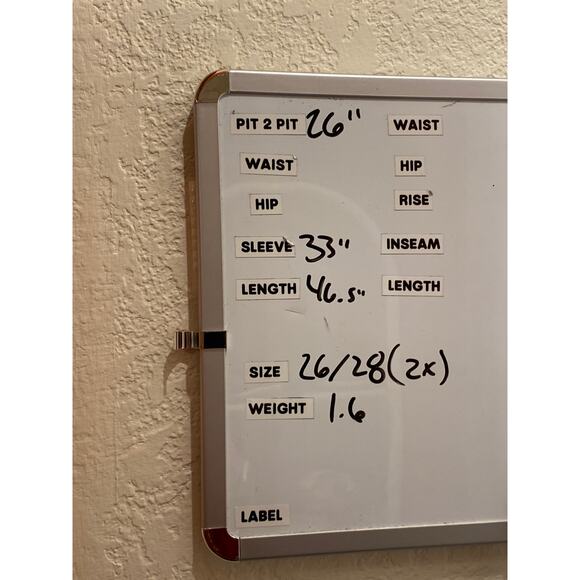 PIT 2 PIT 26" WAIST
WAIST HIP
HIP RISE
SLEEVE 33" INSEAM
LENGTH 46.5" LENGTH
SIZE 26/28 (2x)
WEIGHT 1.6
LABEL